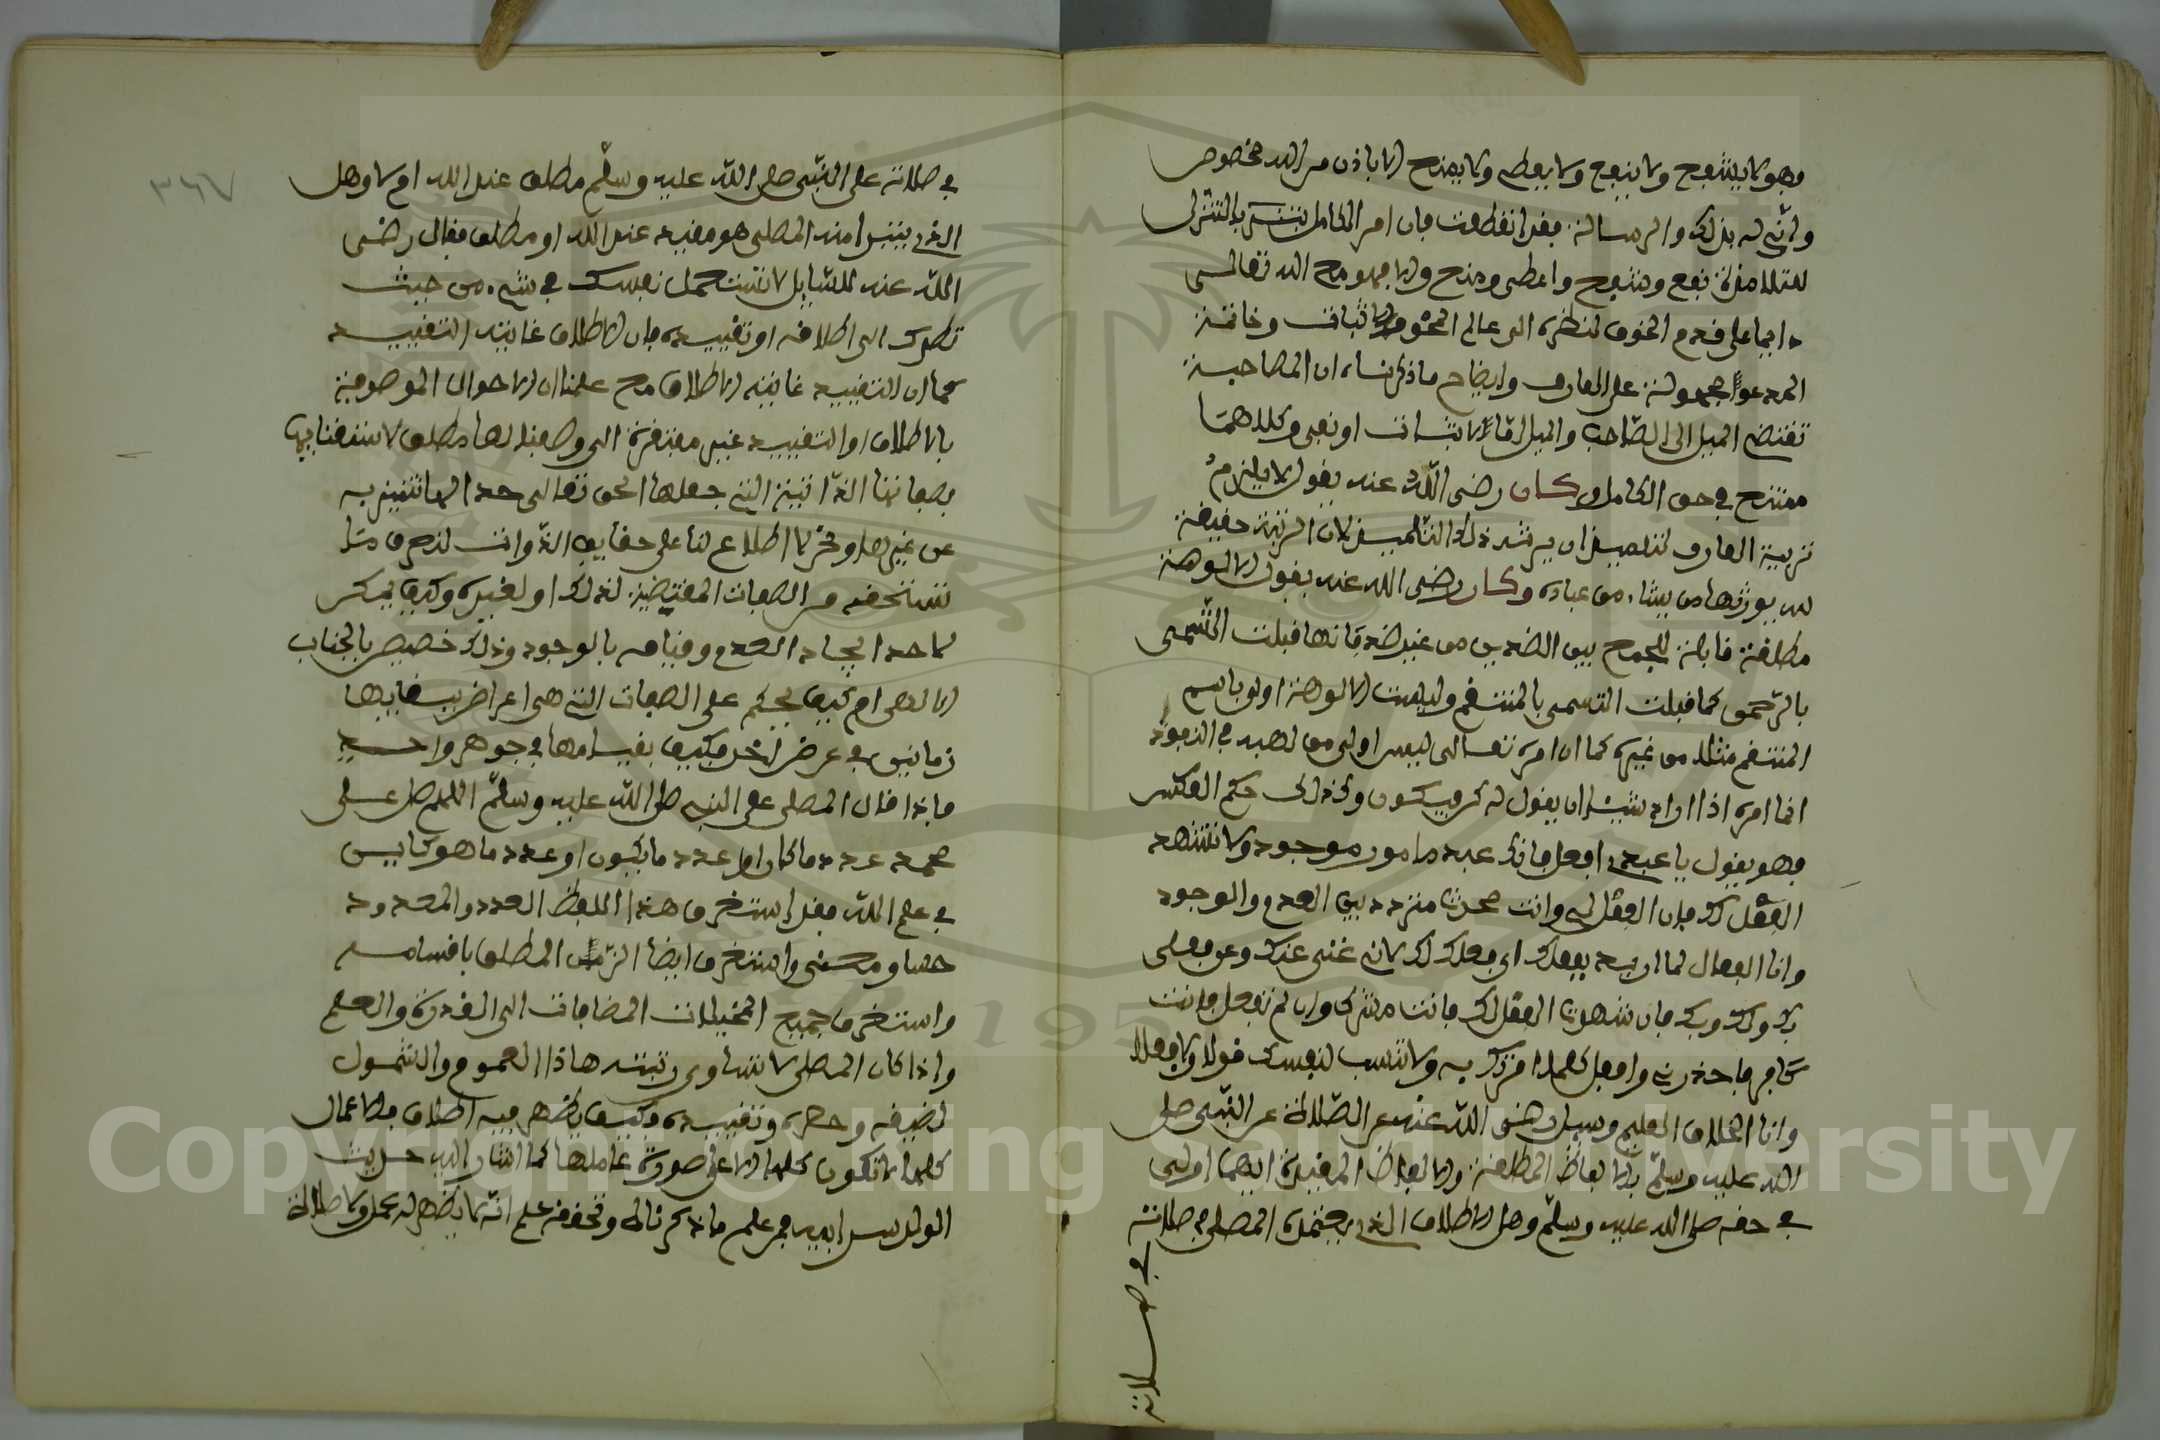 وهو لا يشفع ولا ينفع ولا يعطي ولا يمنح الا باذن من الله مخصوص
وانى له بذلك والرسالة فقد انقطعت فان امر الكامل بشئ بالتنزل
للتلامذة نفع وشفع واعطى ومنح والا فهو مع الله تعالى
دايما على قدم الخوف لنظره الى عالم المحو والاثبات وخاتمة
العارف وايضاح ما ذكرناه ان المصاحبة
تقتضي الميل الى الصاحب والميل اما لاثبات او نفي وكلاهما
ممتنع في حق الكامل وكان رضى الله عنه يقول لا يلزم من
تربية العارف لتلميذ ان يرشد ذلك التلميذ لان الرتبة حقيقة
لله يورثها من يشاء من عباده وكان رضى الله عنه يقول الالوهة
مطلقة قابلة للجمع بين الضدين من غير ضد فانها قبلت التسمي
بالرحمن كما قبلت التسمي بالمنتقم وليست الالوهة اولى باسم
المنتقم مثلا من غيره كما ان امره تعالى ليس اولى من نهيه في النفوذ
انما امره اذا اراد شيئا ان يقول له كن فيكون وكذلك حكم العكس
فهو يقول يا عبدي افعل فانك عبد مامور موجود ولا تشهد
الفعل لك فان الفعل لي وانت محدث متردد بين العدم والوجود
وانا الفعال لما اريد بفعلك اي فعلك لك لاني غني عنك وعن فعلي
بك ولك وبك فان شهدت الفعل لك فانت مشرك وان لم تفعل فانت
كافر فاحذرني وافعل كلما امرتك به ولا تنسب لنفسك قولا ولا فعلا
وانا الخلاق العليم وسئل رضى الله عنه عن الصلاة على النبي صلى
الله عليه وسلم بالالفاظ المطلقة والالفاظ المقيدة ايهما اولى
في حقه صلى الله عليه وسلم وهل الاطلاق الذي يعتمده المصلي في صلاته
في صلاته
٣٦٧
في صلاته على النبي صلى الله عليه وسلم مطلق عند الله ام لا وهل
الذي يتبرا منه المصلي هو مقيد عند الله او مطلق فقال رضى
الله عنه للسايل لا تستحمل نفسك في شيء من حيث
نظرك الى اطلاقه او تقييده فان الاطلاق غايته التقييد
كما ان التقييد غايته الاطلاق مع علمنا ان الاحوال الموصوفة
بالاطلاق او التقييد غير مفتقرة الى وصفنا لها مطلق لاستغنايها
بصفاتها الذاتية التي جعلها الحق تعالى حدا لها تتميز به
عن غيرها ونحن لا اطلاع لنا على حقايق الذوات لنعرف ما
تستحقه من الصفات المقتضية لذلك او لغيره وكيف يمكن
لاحد ايجاد العدم وقيامه بالوجود وذلك خصيص بالجناب
الالهي ام كيف يحكم على الصفات التي هي اعراض ببقايها
زمانين في عرض اخر فكيف بقيامها في جوهر واحد
فاذا قال المصلي على النبي صلى الله عليه وسلم اللهم صل على
محمد عدد ما كان او عدد ما يكون او عدد ما هو كاين
في علم الله فقد استغرق هذا اللفظ العدد والمعدود
حسا ومعنى واستغرق ايضا الزمن المطلق باقسامه
واستغرق جميع المخيلات المضافات الى القدرة والعلم
واذا كان المصلي لا تساوي رتبته هاذا العموم والشمول
لضيقه وحصره وتقييده فكيف يظهر فيه اطلاق فالاعمال
كلها لا تكون كلها الا على صورة عاملها كما اشار اليه حديث
الولد سر ابيه فمن علم ما ذكرناه وتحققه علم انه لا يظهر له عمل ولا صلاة